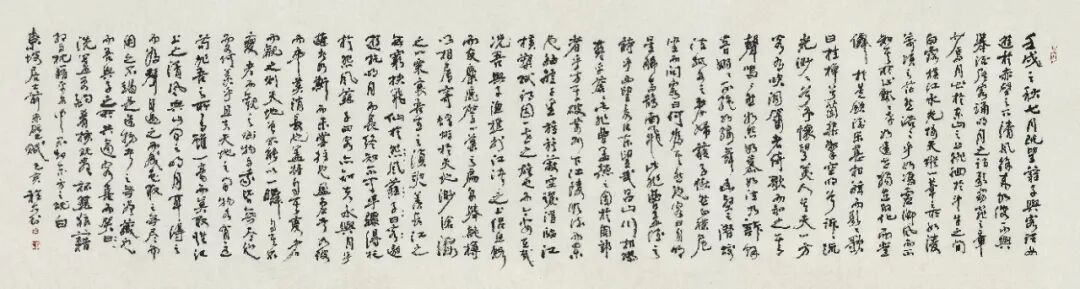 壬戌之秋七月既望蘇子與客泛舟
遊於赤壁之下清風徐來水波不興
舉酒屬客誦明月之詩歌窈窕之章
少焉月出於東山之上徘徊於斗牛之間
白露橫江水光接天縱一葦之所如凌
萬頃之茫然浩浩乎如馮虛御風而不
知其所止飄飄乎如遺世獨立羽化而登
僊於是飲酒樂甚扣舷而歌之歌
曰桂棹兮蘭槳擊空明兮溯流
光渺渺兮予懷望美人兮天一方
客有吹洞簫者倚歌而和之其
聲嗚嗚然如怨如慕如泣如訴餘
音嫋嫋不絕如縷舞幽壑之潛蛟
泣孤舟之嫠婦蘇子愀然正襟危
坐而問客曰何為其然也客曰月明
星稀烏鵲南飛此非曹孟德之
詩乎西望夏口東望武昌山川相繆
鬱乎蒼蒼此非孟德之困於周郎
者乎方其破荊州下江陵順流而東
也舳艫千里旌旗蔽空釃酒臨江
橫槊賦詩固一世之雄也而今安在哉
況吾與子漁樵於江渚之上侶魚蝦
而友麋鹿駕一葉之扁舟舉匏樽
以相屬寄蜉蝣於天地渺滄海
之一粟哀吾生之須臾羨長江之
無窮挾飛仙以遨
遊抱明月而長終知不可乎驟得託
於悲風蘇子曰客亦知夫水與月乎
逝者如斯而未嘗往也盈虛者如彼
而卒莫消長也蓋將自其變者
而觀之則天地曾不能以一瞬自其不
變者而觀之則物與我皆無盡也
而又何羨乎且夫天地之間物各有主
苟非吾之所有雖一毫而莫取惟江
上之清風與山間之明月耳得之
而為聲目遇之而成色取之無禁
用之不竭是造物者之無盡藏也
而吾與子之所共適客喜而笑
洗盞更酌肴核既盡杯盤狼藉
相與枕藉乎舟中不知東方之既白
東坡居士前赤壁賦己亥